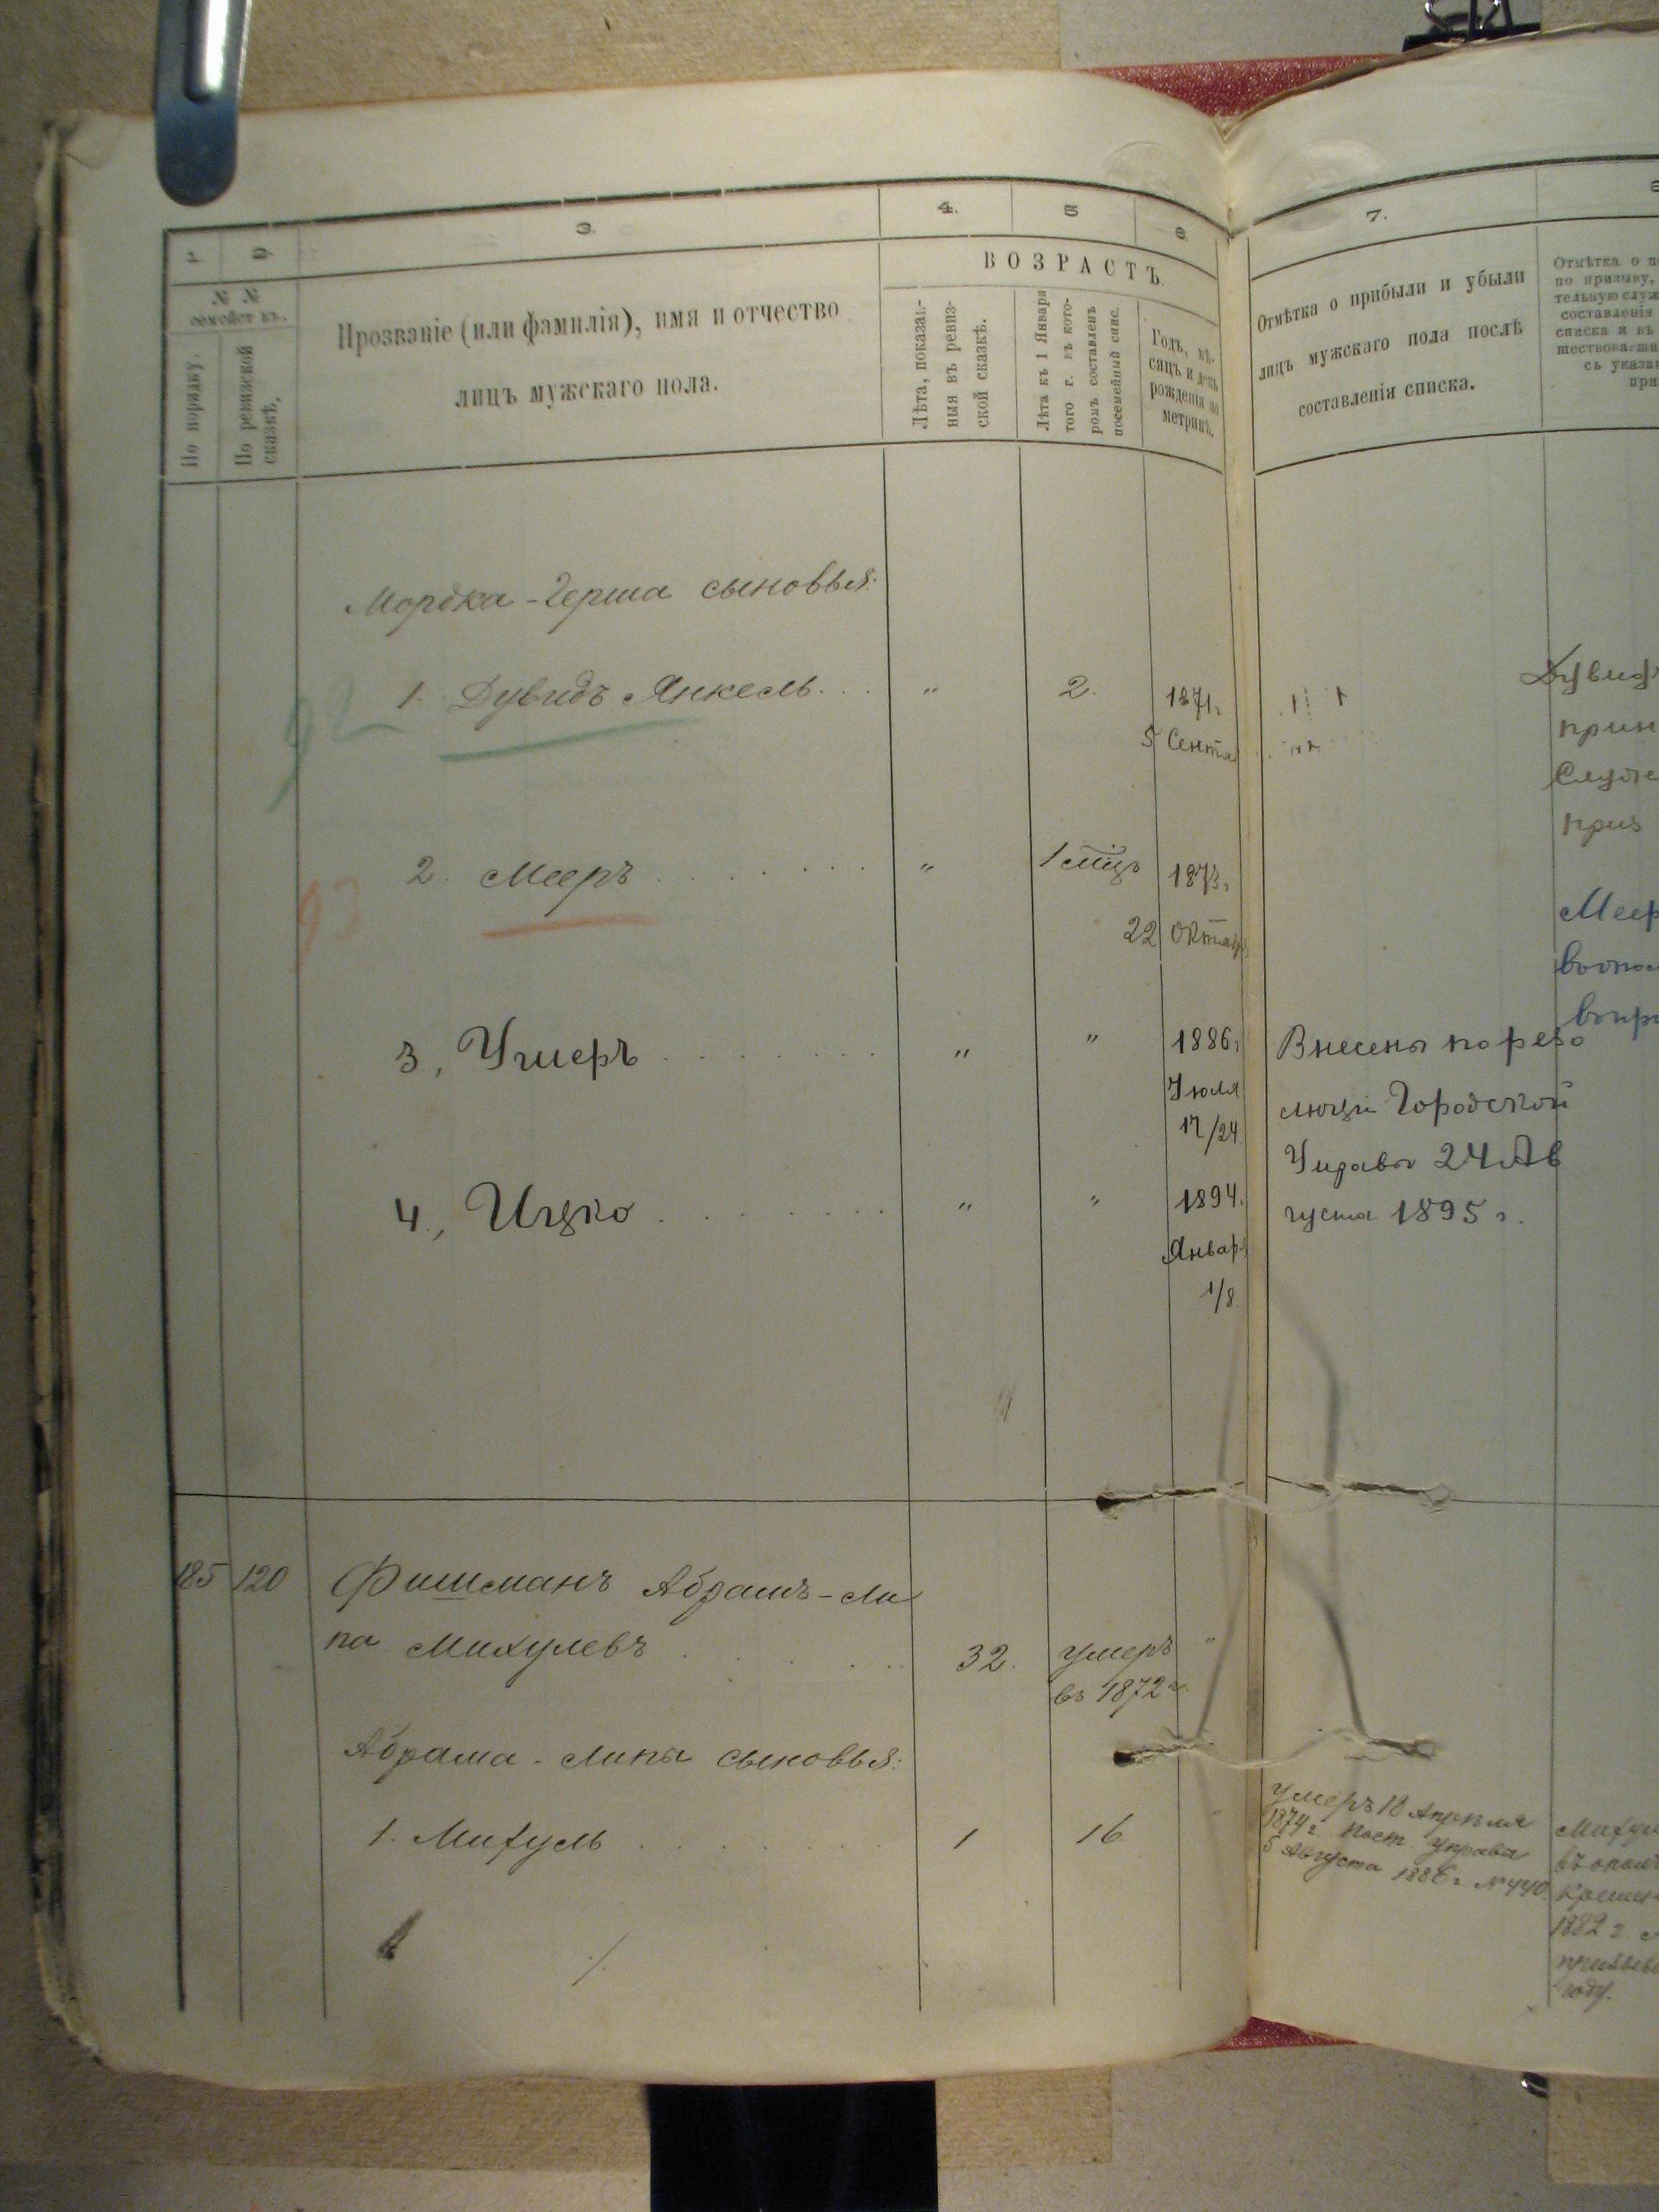 1. 2. 3. 4. 5 6. 7. 8
№ №
семействъ.
По порядку.
По ревизской
сказкѣ.
Прозваніе (или фамилія), имя и отчество
лицъ мужскаго пола.
ВОЗРАСТЪ.
Лѣта, показан-
ныя въ ревиз-
ской сказкѣ.
Лѣта къ 1 Января
того г. въ кото-
ромъ составленъ
посемейный спис.
Годъ, мѣ-
сяцъ и день
рожденія по
метрикѣ.
Отмѣтка о прибыли и убыли
лицъ мужскаго пола послѣ
составленія списка.
Отмѣтка о п
по призыву,
тельную служ
составленія
списка и въ
шествовавши
съ указа
при
Мордка-Герша сыновья:
1. Дувидъ Янкель . . . " 2. 1871г.
5 Сентя
92
Дувид
прин
Служ
приз
2. Мееръ . . . . . . . . " 1 мѣц 1873г.
22 Октяб
93
Меер
въ опол
въ пр
3, Умеръ . . . . . . . . " " 1886г
Июля
17/24
Внесены по резо
люціи Городской
Управы 24 Ав
густа 1895 г.
4., Ицко . . . . . . . . " " 1894.
Январ
1/8
185 120 Фишманъ Абрамъ-Ли
па Михулевъ . . . . . . 32. умеръ "
въ 1872 г.
Абрама-Липы сыновья:
1. Михуль . . . . . . . 1 16 "
умеръ 18 Апрѣля
1874 г. Пост. Управы
5 Августа 1886 г. №440.
Михул
въ опол
1882 г.
году.